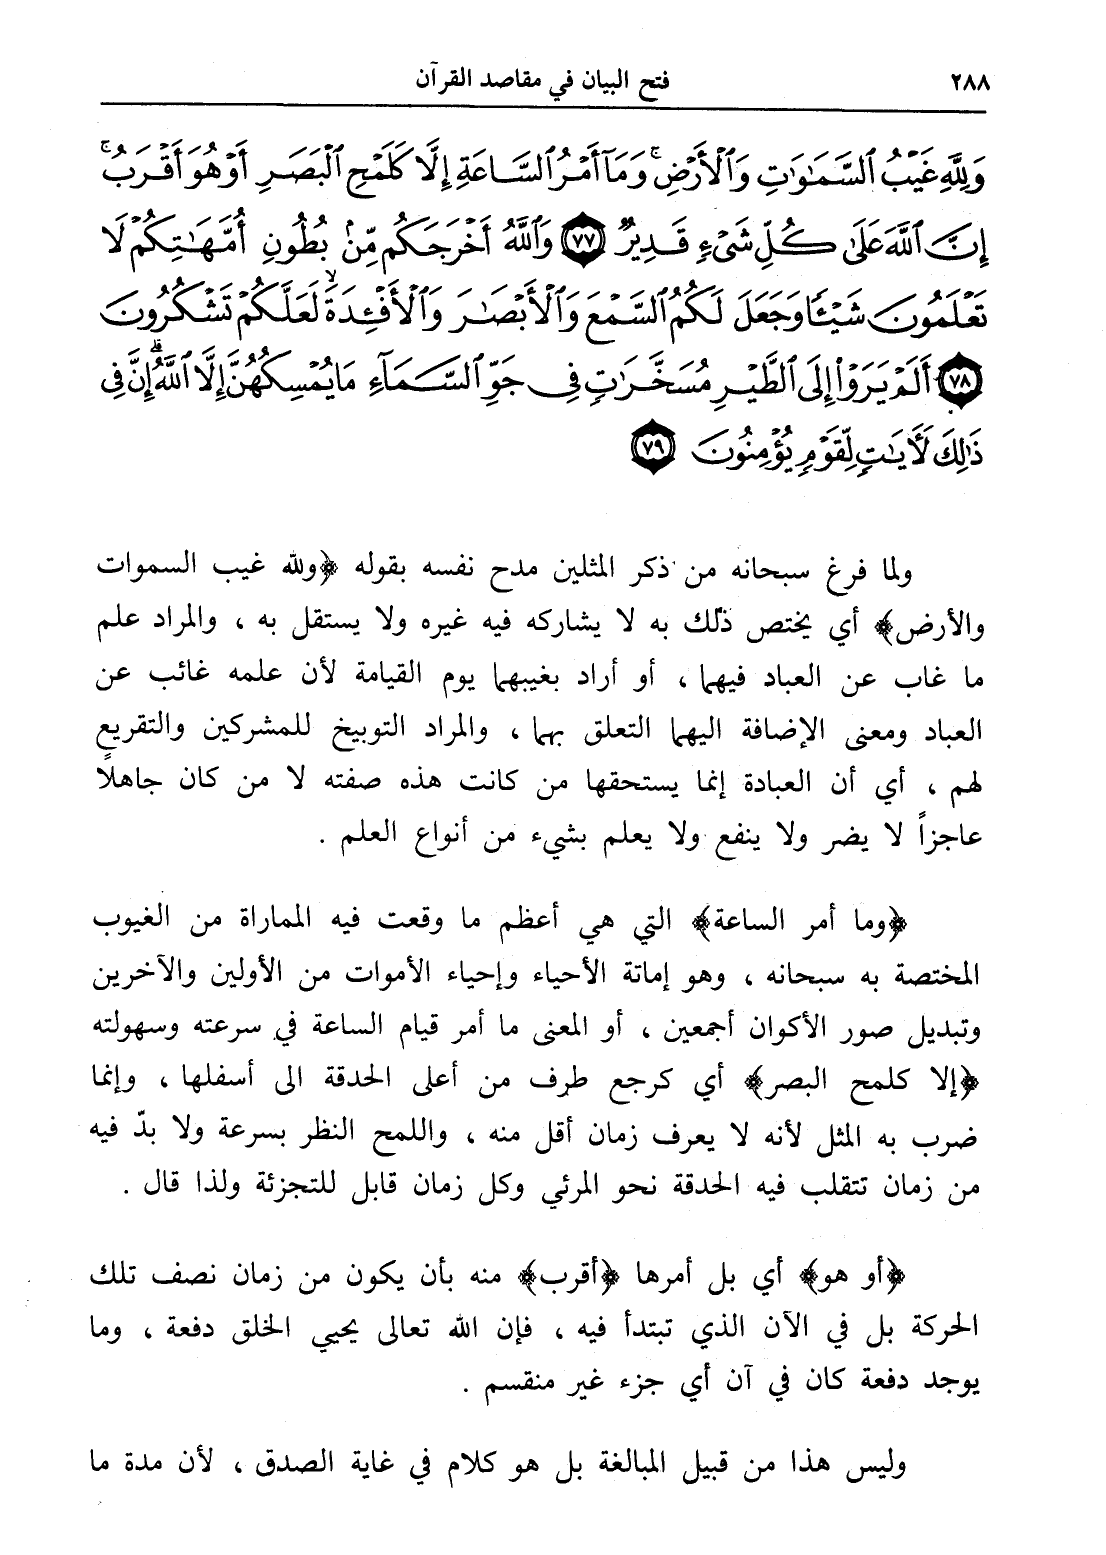 ٢٨٨
فتح البيان في مقاصد القرآن
وَلِلَّهِ غَيْبُ ٱلسَّمَٰوَٰتِ وَٱلْأَرْضِ ۚ وَمَآ أَمْرُ ٱلسَّاعَةِ إِلَّا كَلَمْحِ ٱلْبَصَرِ أَوْ هُوَ أَقْرَبُ ۚ
إِنَّ ٱللَّهَ عَلَىٰ كُلِّ شَىْءٍ قَدِيرٌ ٧٧ وَٱللَّهُ أَخْرَجَكُم مِّنۢ بُطُونِ أُمَّهَٰتِكُمْ لَا
تَعْلَمُونَ شَيْـًٔا وَجَعَلَ لَكُمُ ٱلسَّمْعَ وَٱلْأَبْصَٰرَ وَٱلْأَفْـِٔدَةَ ۙ لَعَلَّكُمْ تَشْكُرُونَ
٧٨ أَلَمْ يَرَوْا۟ إِلَى ٱلطَّيْرِ مُسَخَّرَٰتٍ فِى جَوِّ ٱلسَّمَآءِ مَا يُمْسِكُهُنَّ إِلَّا ٱللَّهُ ۗ إِنَّ فِى
ذَٰلِكَ لَـَٔايَٰتٍ لِّقَوْمٍ يُؤْمِنُونَ ٧٩
ولما فرغ سبحانه من ذكر المثلين مدح نفسه بقوله ﴿ولله غيب السموات
والأرض﴾ أي يختص ذلك به لا يشاركه فيه غيره ولا يستقل به ، والمراد علم
ما غاب عن العباد فيهما ، أو أراد بغيبهما يوم القيامة لأن علمه غائب عن
العباد ومعنى الإضافة اليهما التعلق بهما ، والمراد التوبيخ للمشركين والتقريع
لهم ، أي أن العبادة إنما يستحقها من كانت هذه صفته لا من كان جاهلاً
عاجزاً لا يضر ولا ينفع ولا يعلم بشيء من أنواع العلم .
﴿وما أمر الساعة﴾ التي هي أعظم ما وقعت فيه المماراة من الغيوب
المختصة به سبحانه ، وهو إماتة الأحياء وإحياء الأموات من الأولين والآخرين
وتبديل صور الأكوان أجمعين ، أو المعنى ما أمر قيام الساعة في سرعته وسهولته
﴿إلا كلمح البصر﴾ أي كرجع طرف من أعلى الحدقة الى أسفلها ، وإنما
ضرب به المثل لأنه لا يعرف زمان أقل منه ، واللمح النظر بسرعة ولا بدّ فيه
من زمان تتقلب فيه الحدقة نحو المرئي وكل زمان قابل للتجزئة ولذا قال .
﴿أو هو﴾ أي بل أمرها ﴿أقرب﴾ منه بأن يكون من زمان نصف تلك
الحركة بل في الآن الذي تبتدأ فيه ، فإن الله تعالى يحيي الخلق دفعة ، وما
يوجد دفعة كان في آن أي جزء غير منقسم .
وليس هذا من قبيل المبالغة بل هو كلام في غاية الصدق ، لأن مدة ما